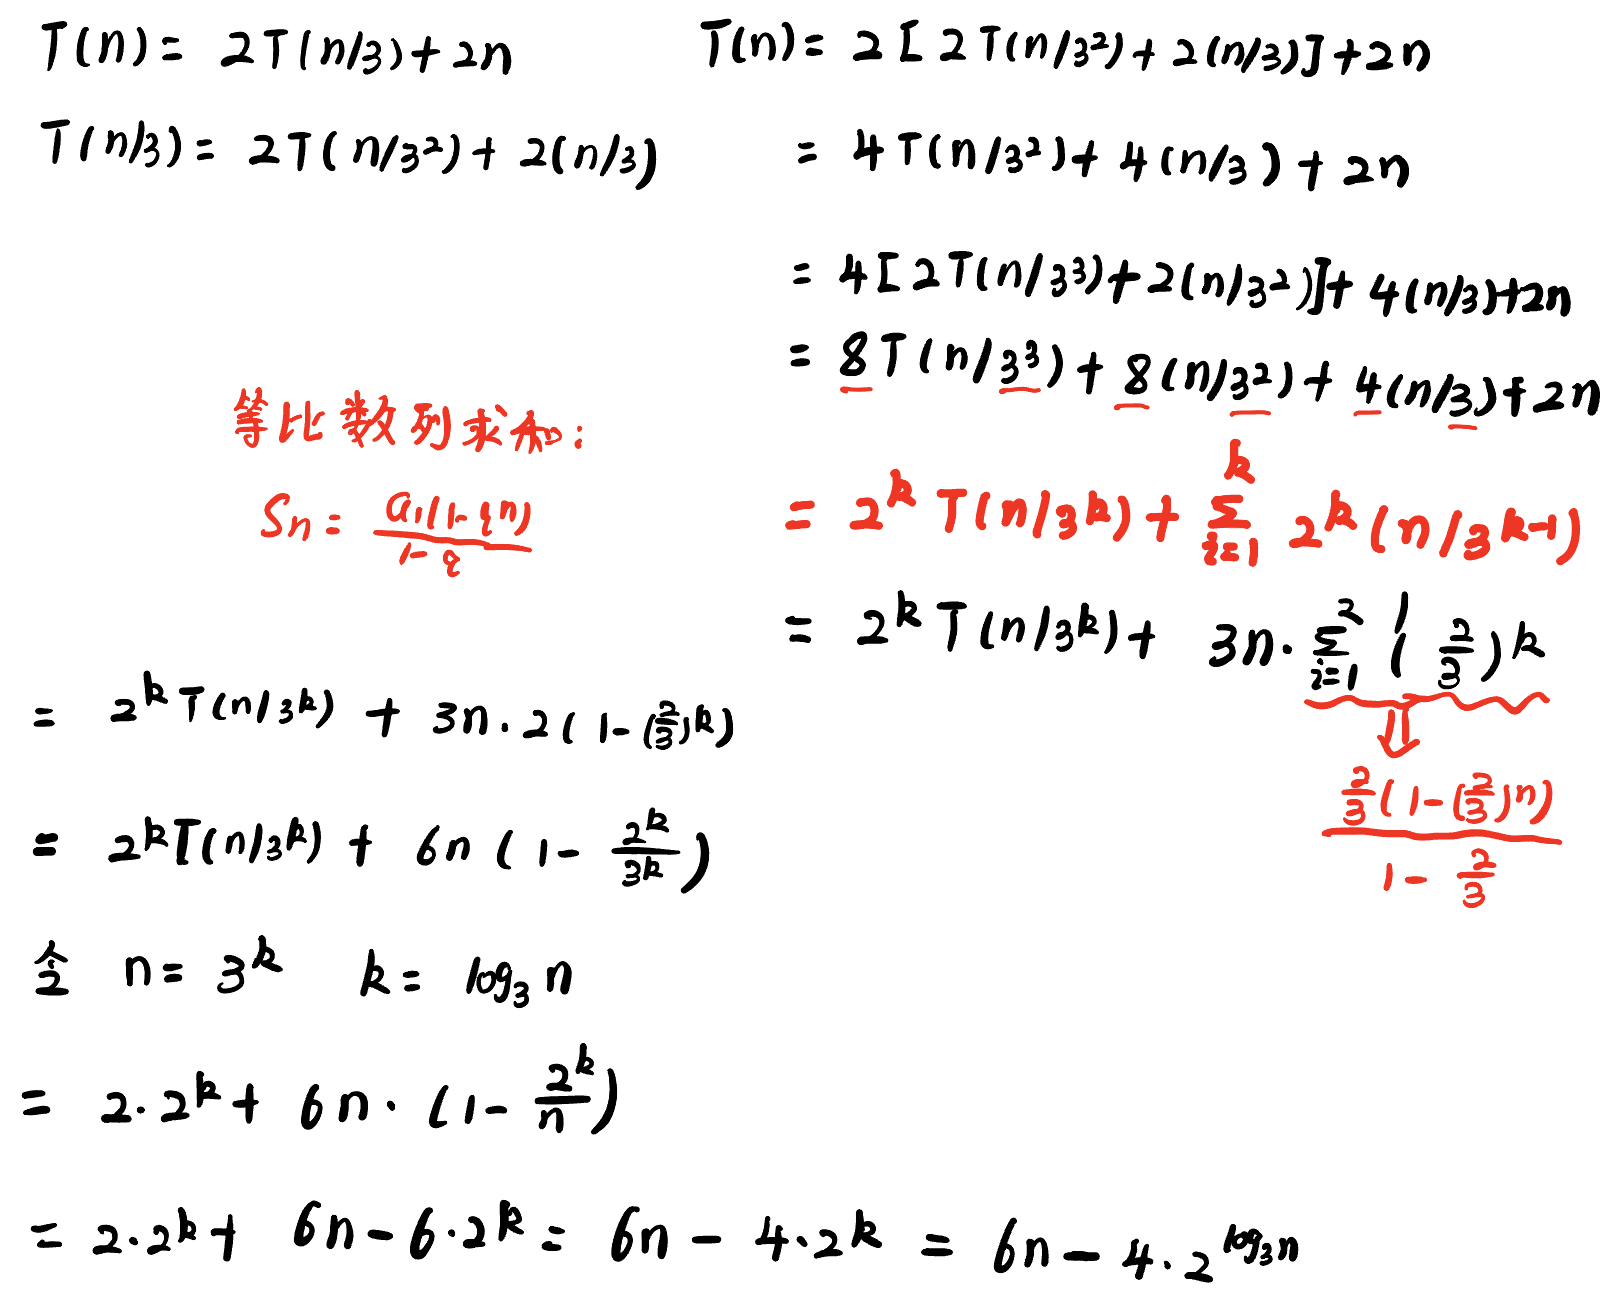 T(n) = 2T(n/3) + 2n
T(n/3) = 2T(n/3²) + 2(n/3)
T(n) = 2[2T(n/3²) + 2(n/3)] + 2n
= 4T(n/3²) + 4(n/3) + 2n
= 4[2T(n/3³) + 2(n/3²)] + 4(n/3) + 2n
= 8T(n/3³) + 8(n/3²) + 4(n/3) + 2n
= 2^k T(n/3^k) + Σ_{i=1}^{k} 2^k (n/3^{k-1})
= 2^k T(n/3^k) + 3n · Σ_{i=1}^{2} (2/3)^k
⇓
(2/3 (1 - (2/3)^n)) / (1 - 2/3)
等比数列求和:
Sn = a₁(1-q^n) / (1-q)
= 2^k T(n/3^k) + 3n · 2(1 - (2/3)^k)
= 2^k T(n/3^k) + 6n (1 - 2^k/3^k)
令 n = 3^k k = log₃ n
= 2·2^k + 6n · (1 - 2^k/n)
= 2·2^k + 6n - 6·2^k = 6n - 4·2^k = 6n - 4·2^{log₃n}